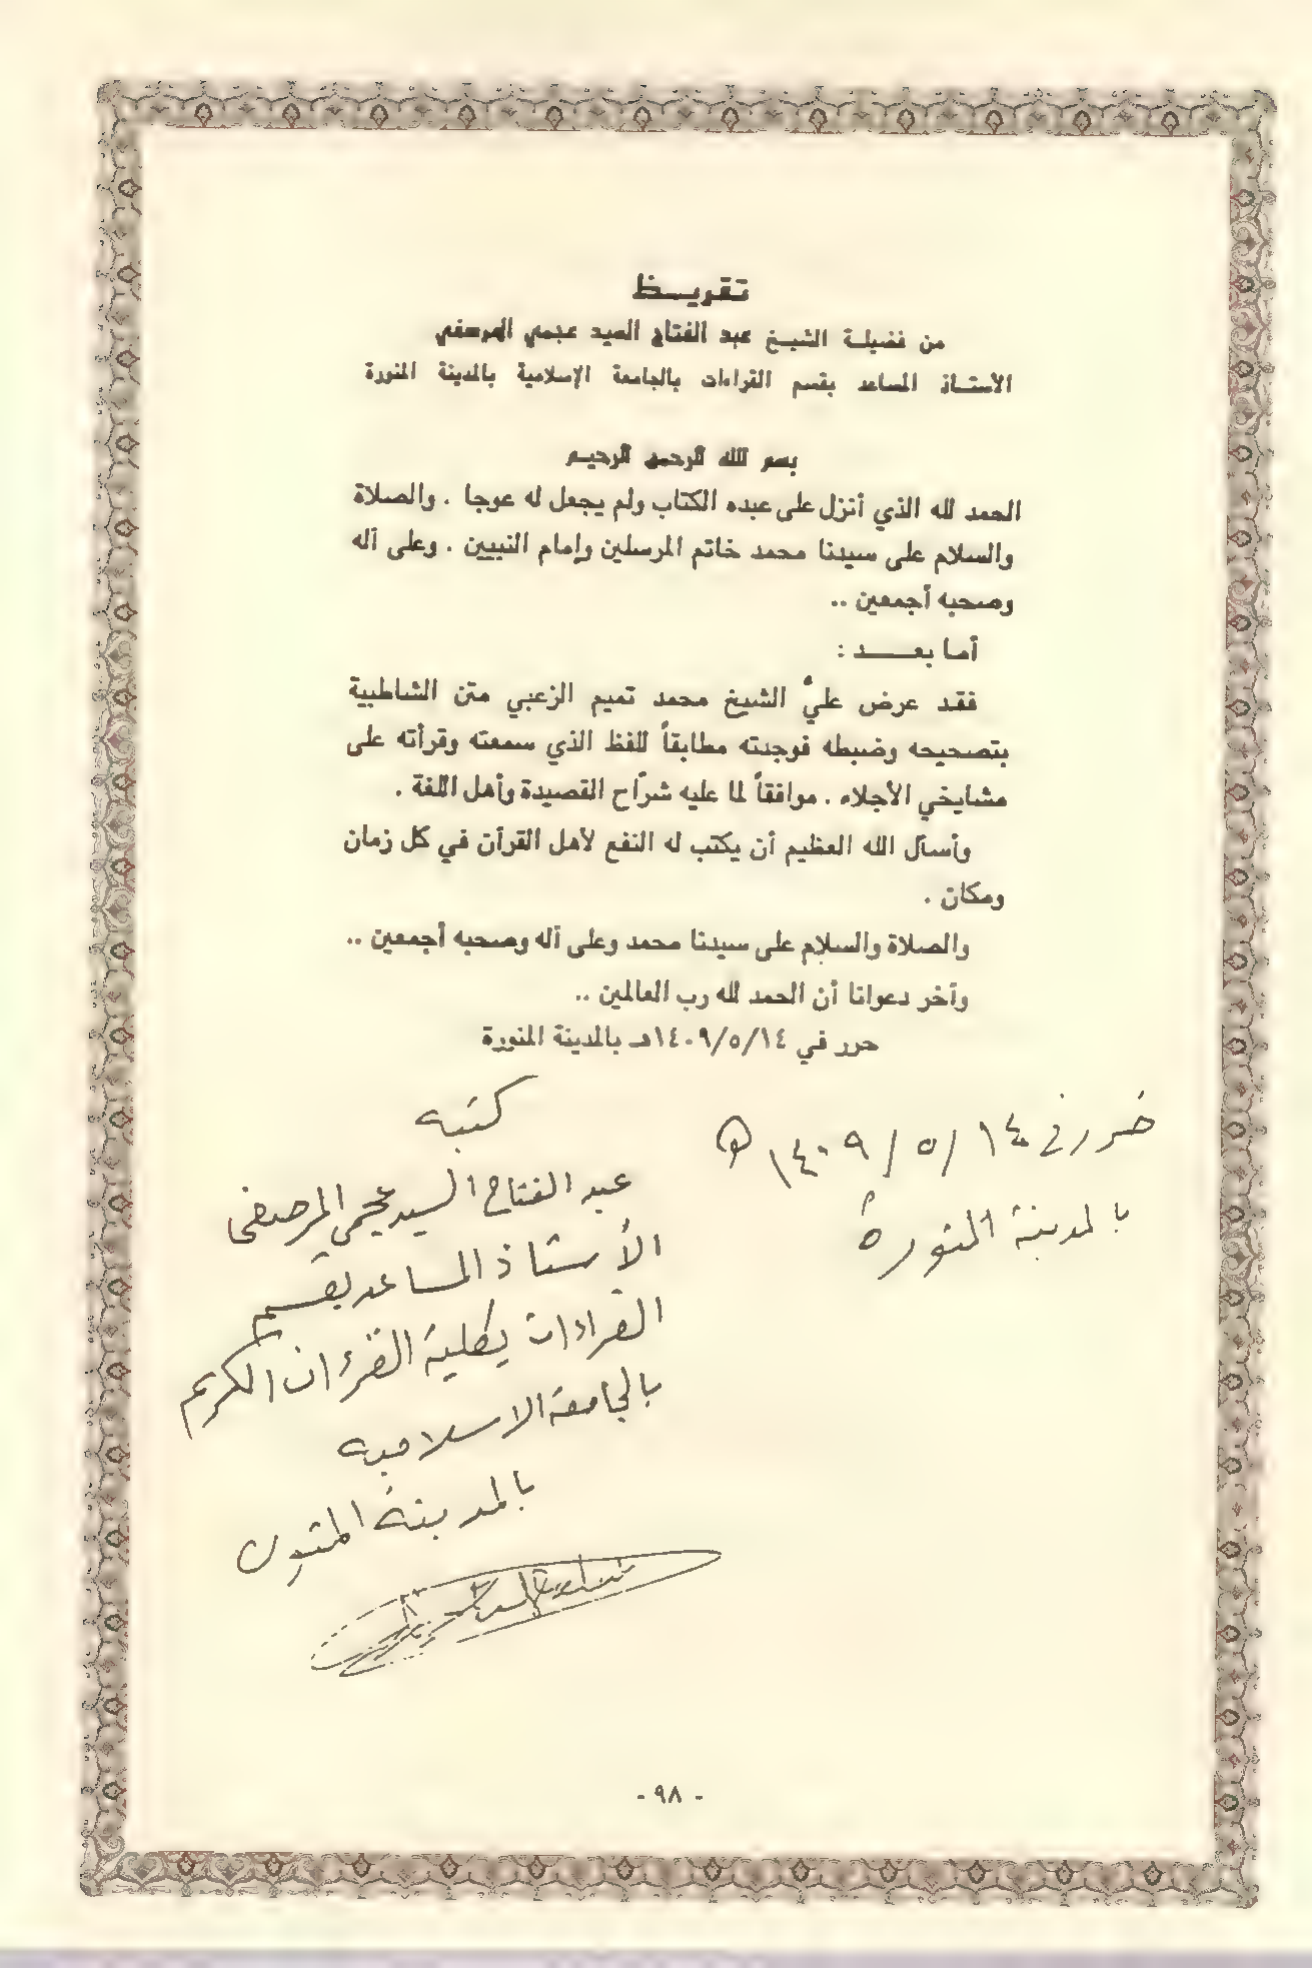 تقريــظ
من فضيلة الشيخ عبد الفتاح السيد عجمي المرصفي
الأستاذ المساعد بقسم القراءات بالجامعة الإسلامية بالمدينة المنورة
بسم الله الرحمن الرحيم
الحمد لله الذي أنزل على عبده الكتاب ولم يجعل له عوجا . والصلاة
والسلام على سيدنا محمد خاتم المرسلين وإمام النبيين . وعلى آله
وصحبه أجمعين ..
أما بعــــد :
فقد عرض عليَّ الشيخ محمد تميم الزعبي متن الشاطبية
بتصحيحه وضبطه فوجدته مطابقاً للفظ الذي سمعته وقرأته على
مشايخي الأجلاء . موافقاً لما عليه شرّاح القصيدة وأهل اللغة .
وأسأل الله العظيم أن يكتب له النفع لأهل القرآن في كل زمان
ومكان .
والصلاة والسلام على سيدنا محمد وعلى آله وصحبه أجمعين ..
وآخر دعوانا أن الحمد لله رب العالمين ..
حرر في ١٤٠٩/٥/١٤هـ بالمدينة المنورة
حرر في ١٤ / ٥ / ١٤٠٩ هـ
بالمدينة المنورة
كتبه
عبد الفتاح السيد عجمي المرصفى
الأستاذ المساعد بقسم
القراءات بكلية القرءان الكريم
بالجامعة الاسلامية
بالمدينة المنورة
- ٩٨ -